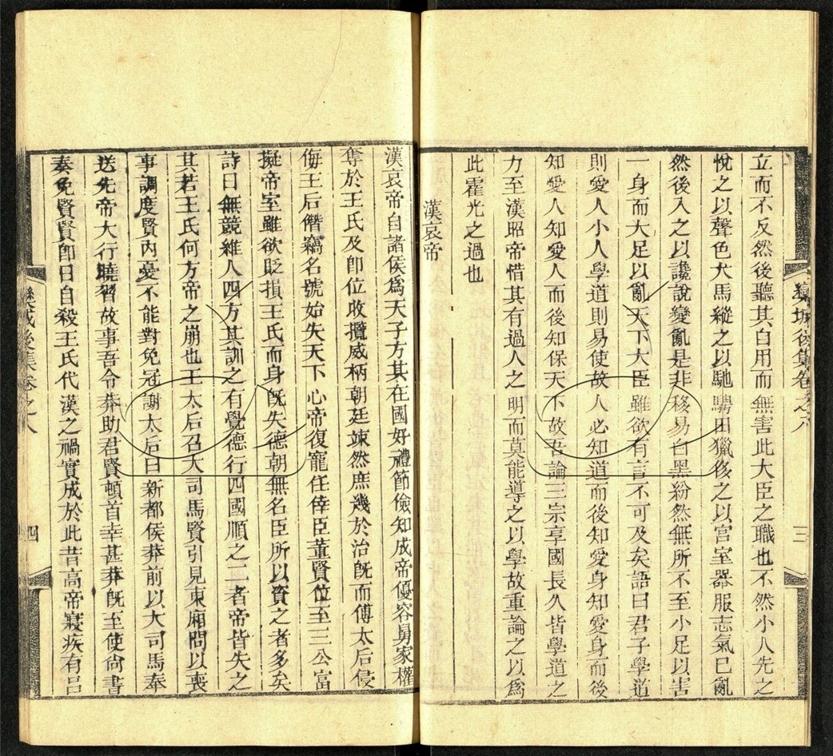 欒城後集卷之八
三
立而不反然後聽其自用而無害此大臣之職也不然小人先之
悅之以聲色犬馬縱之以馳騁田獵侈之以宮室器服志氣已亂
然後入之以讒說變亂是非移易白黑紛然無所不至小足以害
一身而大足以亂天下大臣雖欲有言不可及矣語曰君子學道
則愛人小人學道則易使故人必知道而後知愛身知愛身而後
知愛人知愛人而後知保天下故吾論三宗享國長久皆學道之
力至漢昭帝惜其有過人之明而莫能導之以學故重論之以爲
此霍光之過也
漢哀帝
漢哀帝自諸侯爲天子方其在國好禮節儉知成帝優容舅家權
奪於王氏及卽位收攬威柄朝廷竦然庶幾於治旣而傅太后侵
侮王后僭竊名號始失天下心帝復寵任倖臣董賢位至三公富
擬帝室雖欲貶損王氏而身旣失德朝無名臣所以資之者多矣
詩曰無競維人四方其訓之有覺德行四國順之二者帝皆失之
其若王氏何方帝之崩也王太后召大司馬賢引見東廂問以喪
事調度賢內憂不能對免冠謝太后曰新都侯莽前以大司馬奉
送先帝大行曉習故事吾令莽助君賢頓首幸甚莽旣至使尙書
奏免賢賢卽日自殺王氏代漢之禍實成於此昔高帝寢疾有呂
欒城後集卷之八
四